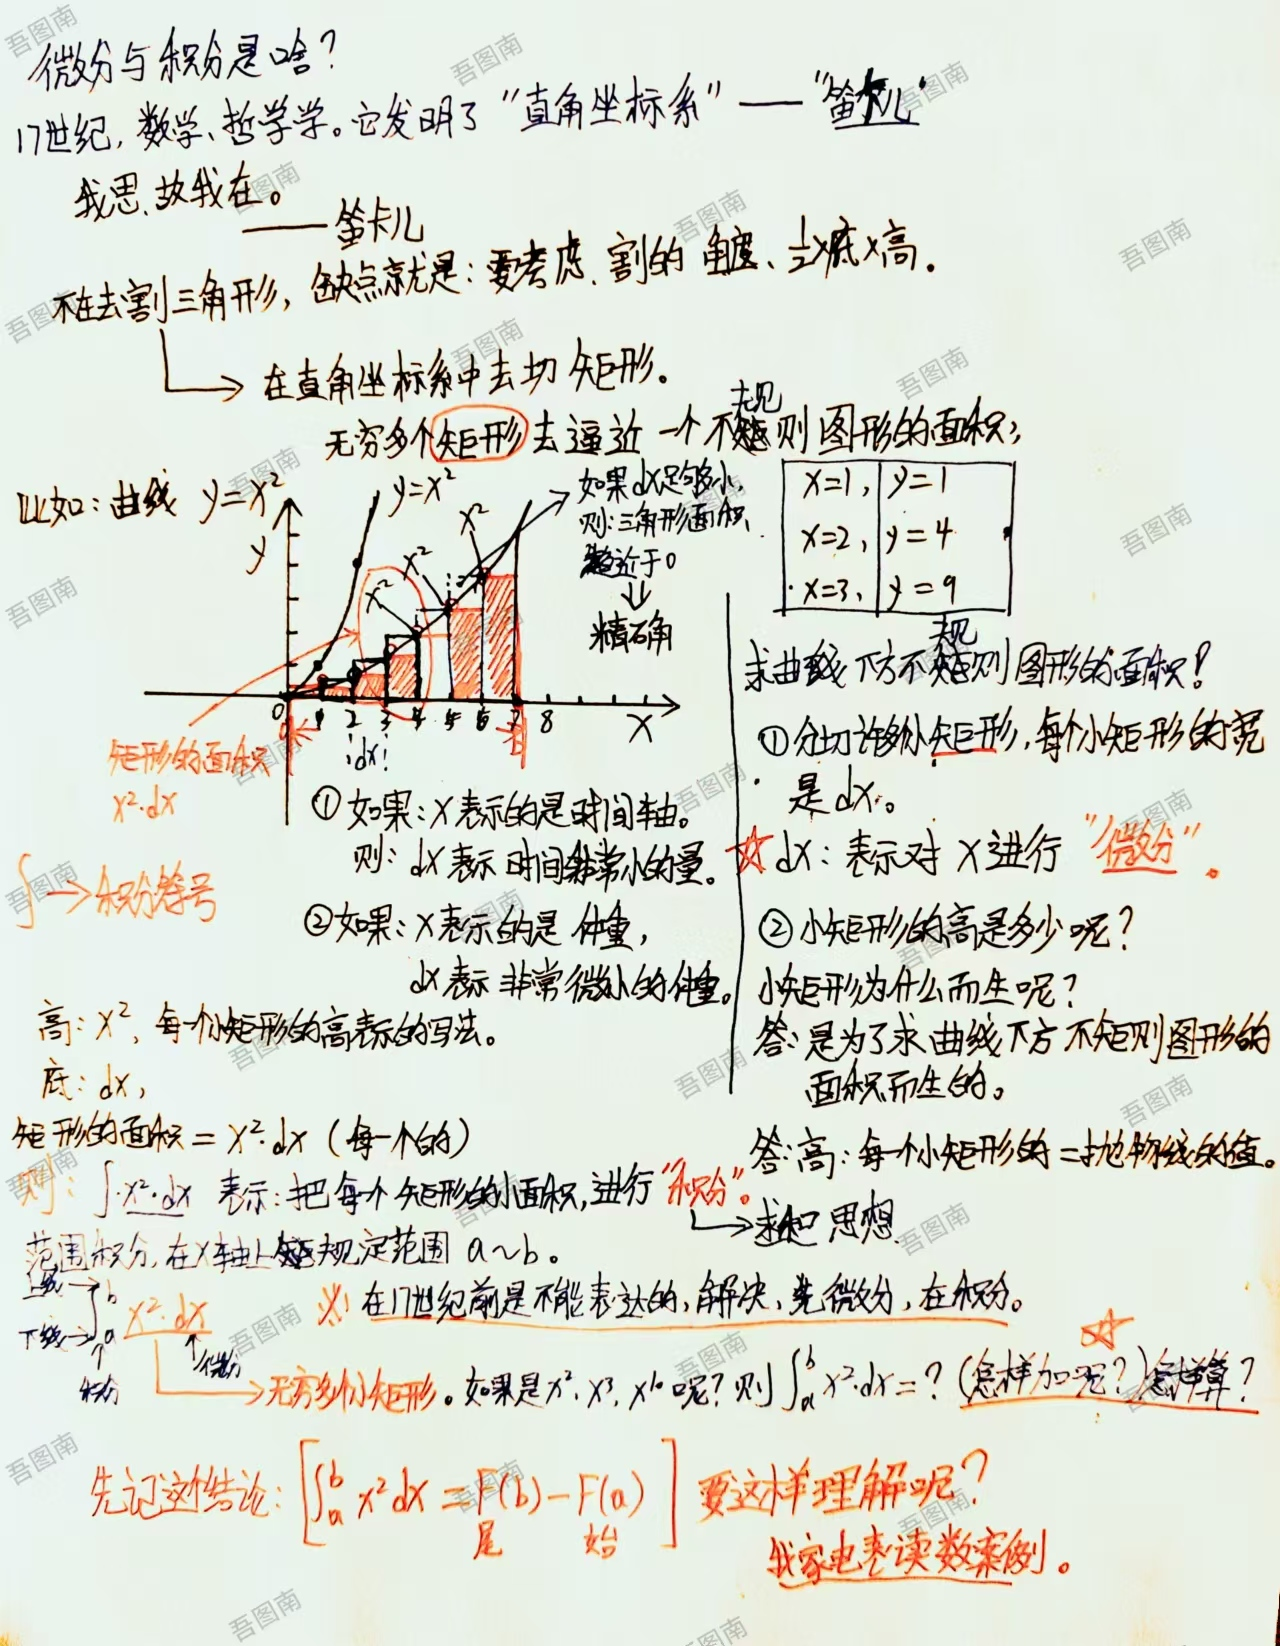 微分与积分是啥？
17世纪，数学、哲学学。它发明了“直角坐标系”——“笛卡儿”
我思、故我在。
——笛卡儿
不在去割三角形，缺点就是：要考虑、割的角度、½×底×高。
在直角坐标系中去切矩形。
无穷多个矩形去逼近一个不规则图形的面积；
比如：曲线 y=x²
y
y=x²
x²
x²
x²
如果dx足够小，
则：三角形面积
趋近于0
精确
0 1 2 3 4 5 6 7 8 X
dx
矩形的面积
x²·dx
x=1, y=1
x=2, y=4
x=3, y=9
求曲线下方不规则图形的面积？
①分切许多小矩形，每个小矩形的宽
是dx。
☆dx：表示对X进行“微分”。
②小矩形的高是多少呢？
小矩形为什么而生呢？
答：是为了求曲线下方不矩则图形的
面积而生的。
答：高：每个小矩形的=抛物线的值。
①如果：X表示的是时间轴。
则：dX表示时间非常小的量。
②如果：X表示的是体重，
dX表示非常微小的体重。
∫→积分符号
高：x²，每一个小矩形的高表示的写法。
底：dx，
矩形的面积=x²·dx（每一个的）
则：∫·x²·dx 表示：把每个矩形的小面积，进行“积分”。
求和思想
范围积分，在X轴上规定范围 a~b。
上线→
下线→
∫ₐᵇ x²·dx
积分
微分
※在17世纪前是不能表达的，解决，先微分，在积分。
无穷多个小矩形。如果是x²、x³、x¹⁰呢？则∫ₐᵇx²·dx=？（怎样加呢？）怎样算？
☆
先记这个结论：[∫ₐᵇ x²dx=F(b)-F(a)] 要这样理解呢？
尾 始
我家电表读数案例。
吾图南